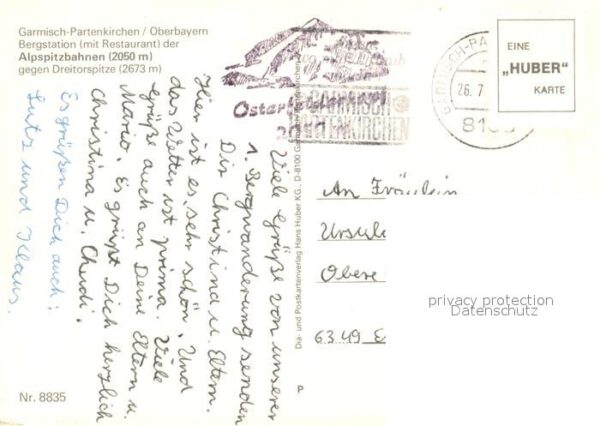 Garmisch-Partenkirchen / Oberbayern
Bergstation (mit Restaurant) der
Alpspitzbahnen (2050 m)
gegen Dreitorspitze (2673 m)
Viele Grüße von unserer
1. Bergwanderung senden
Dir Christina u. Eltern.
Hier ist es sehr schön. Und
das Wetter ist prima. Viele
Grüße auch an Deine Eltern u.
Marco. Es grüßt Dich herzlich
Christina u.
Es grüßen Dich auch:
Lutz und Klaus.
Nr. 8835
Dia- und Postkartenverlag Hans Huber KG., D-8100 Garmisch-Partenkirchen
P
GARMISCH
PARTENKIRCHEN
GARMISCH-PA
26. 7
EINE
„HUBER"
KARTE
An Fräulein
Ursula
Obere
6349 E
privacy protection
Datenschutz